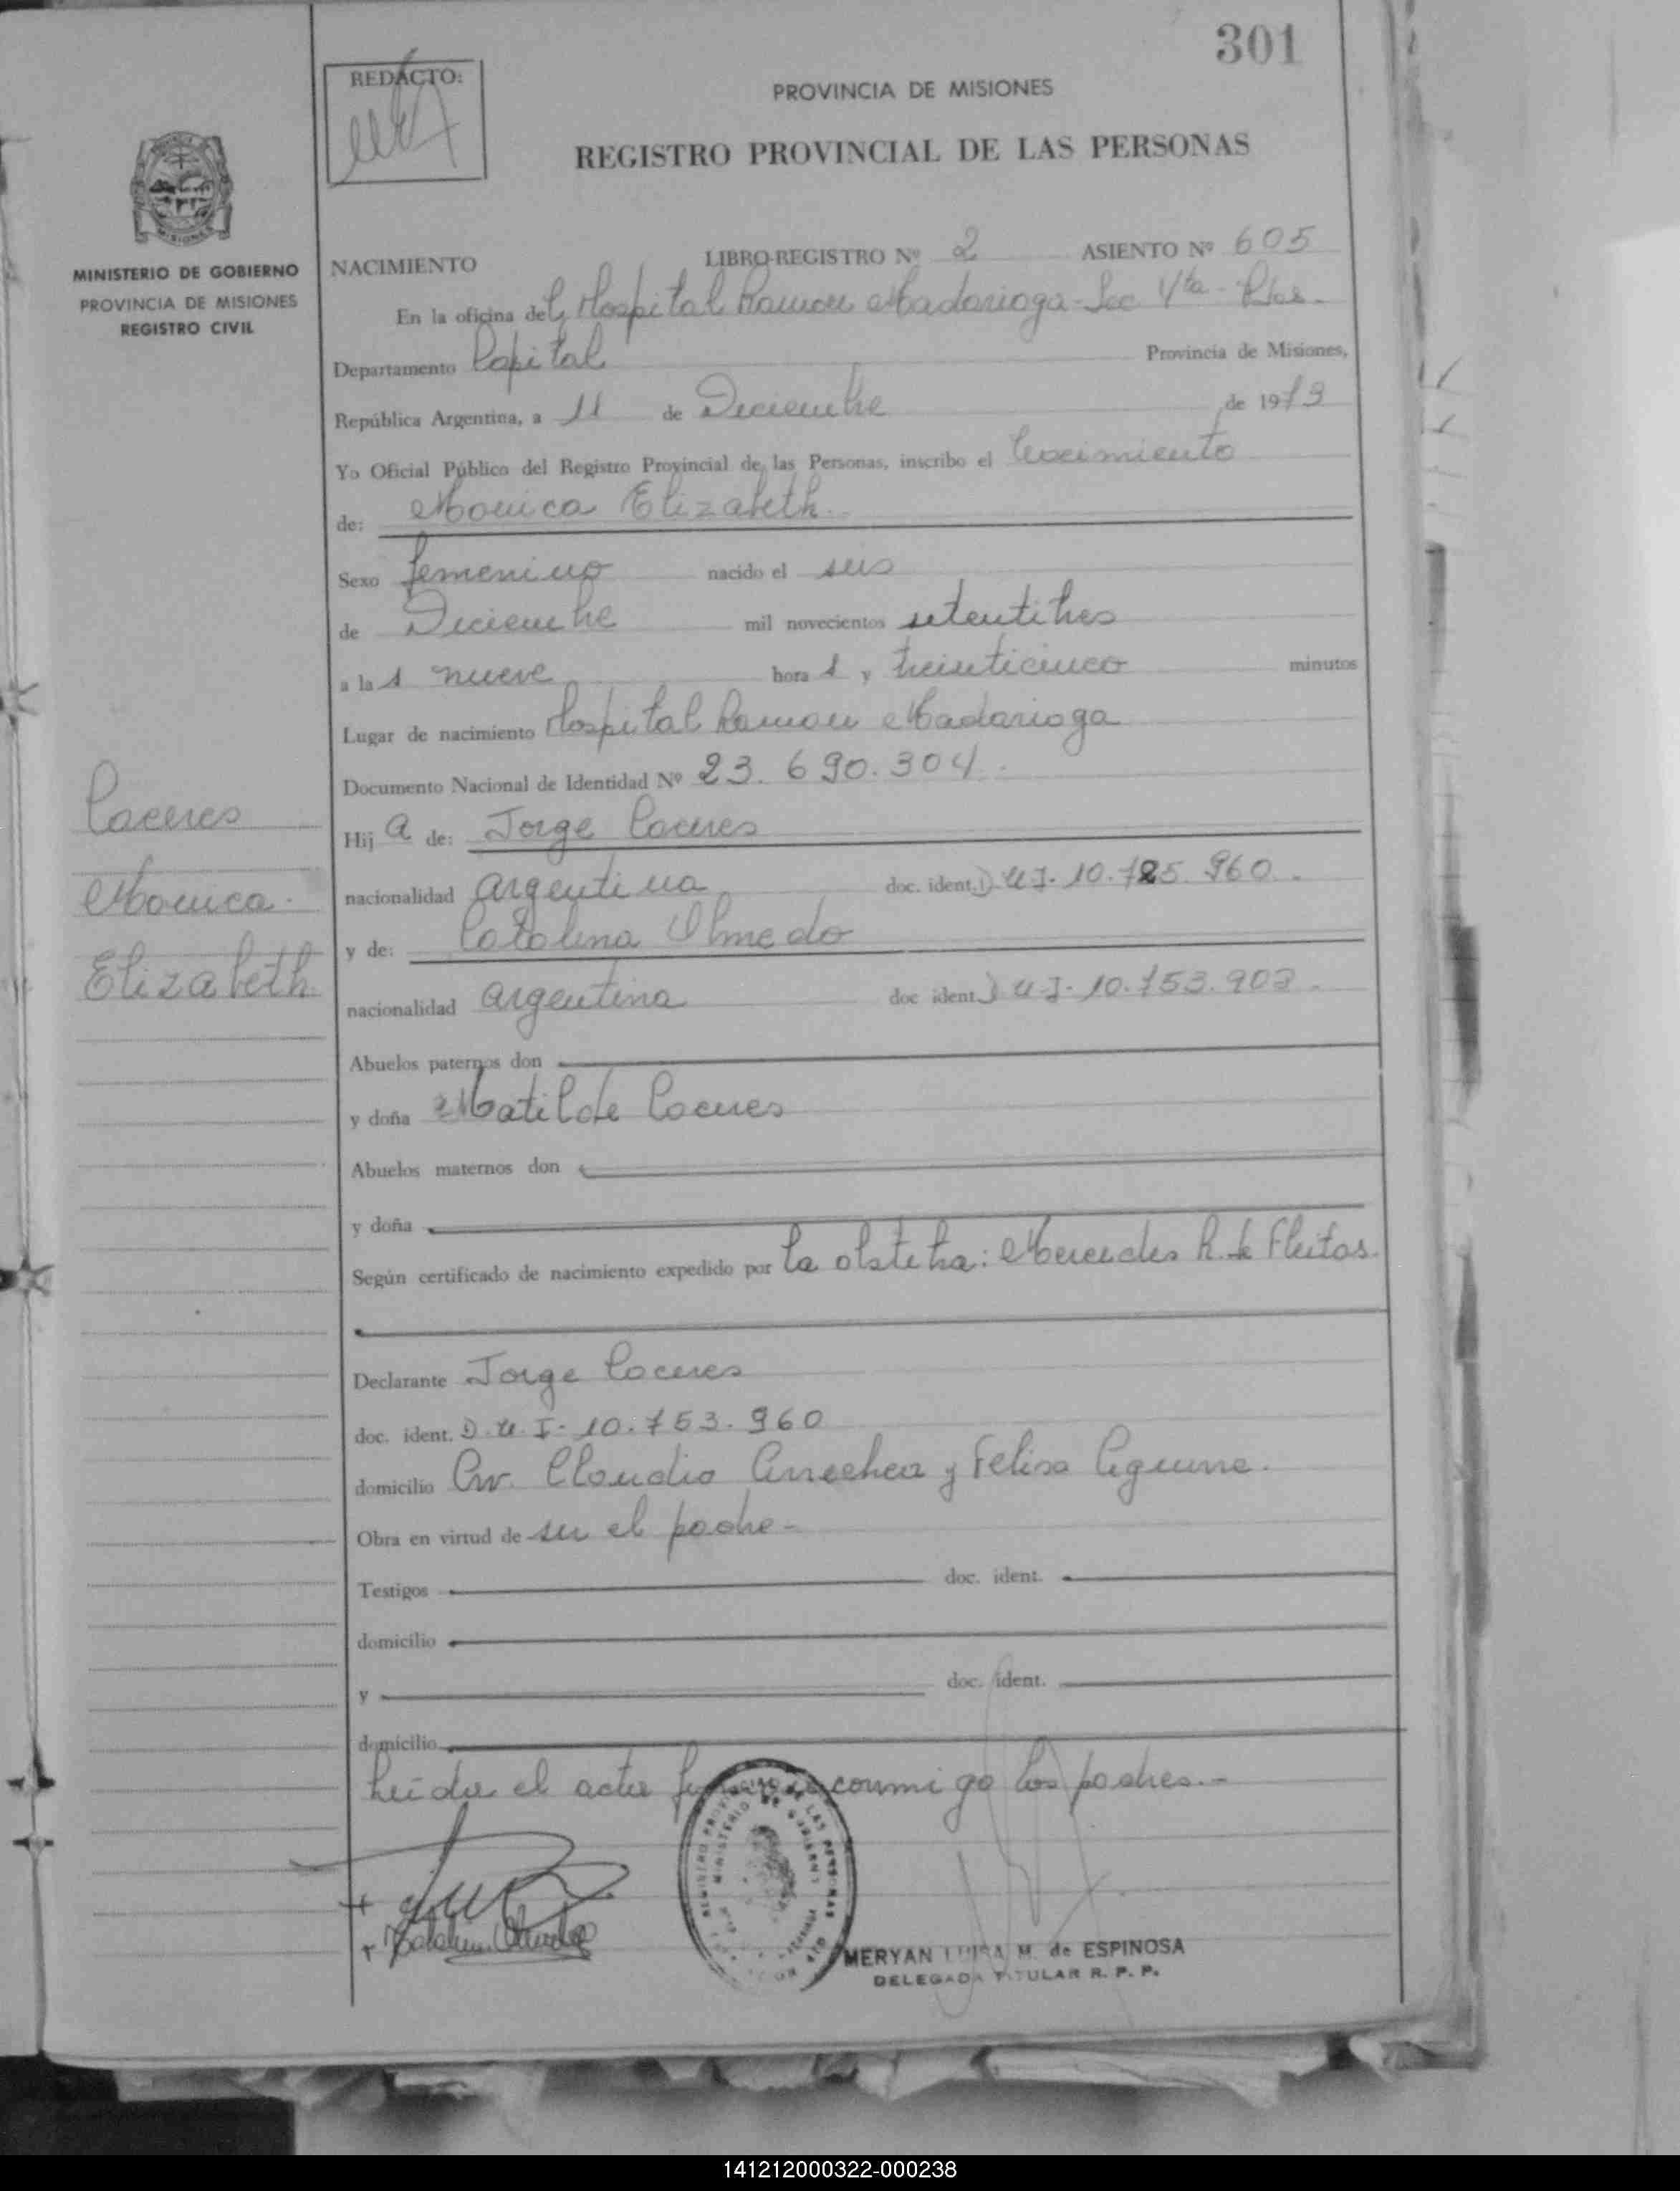 301
REDACTO:
PROVINCIA DE MISIONES
REGISTRO PROVINCIAL DE LAS PERSONAS
MINISTERIO DE GOBIERNO
PROVINCIA DE MISIONES
REGISTRO CIVIL
NACIMIENTO LIBRO-REGISTRO Nº 2 ASIENTO Nº 605
En la oficina del Hospital Ramon Madariaga - Sec 4ta -
Departamento Capital Provincia de Misiones,
República Argentina, a 11 de Diciembre de 1973
Yo Oficial Público del Registro Provincial de las Personas, inscribo el nacimiento
de: Monica Elizabeth
Sexo femenino nacido el seis
de Diciembre mil novecientos setentitres
a las nueve horas y treinticinco minutos
Lugar de nacimiento Hospital Ramon Madariaga
Documento Nacional de Identidad Nº 23.690.304
Caceres
Monica
Elizabeth
Hija de: Jorge Caceres
nacionalidad argentina doc. ident. D U I - 10.785.960
y de: Catalina Olmedo
nacionalidad argentina doc ident. D U I - 10.753.903
Abuelos paternos don
y doña Matilde Caceres
Abuelos maternos don
y doña
Según certificado de nacimiento expedido por la obstetra: Mercedes R. de Fleitas
Declarante Jorge Caceres
doc. ident. D.U.I - 10.753.960
domicilio Av. Claudio Arrechea y Felisa Aguirre.
Obra en virtud de ser el padre -
Testigos doc. ident.
domicilio
y doc. ident.
domicilio
Leida el acta conmigo los padres.-
Catalina Olmedo
MERYAN LUISA M. de ESPINOSA
DELEGADA TITULAR R. P. P.
141212000322-000238